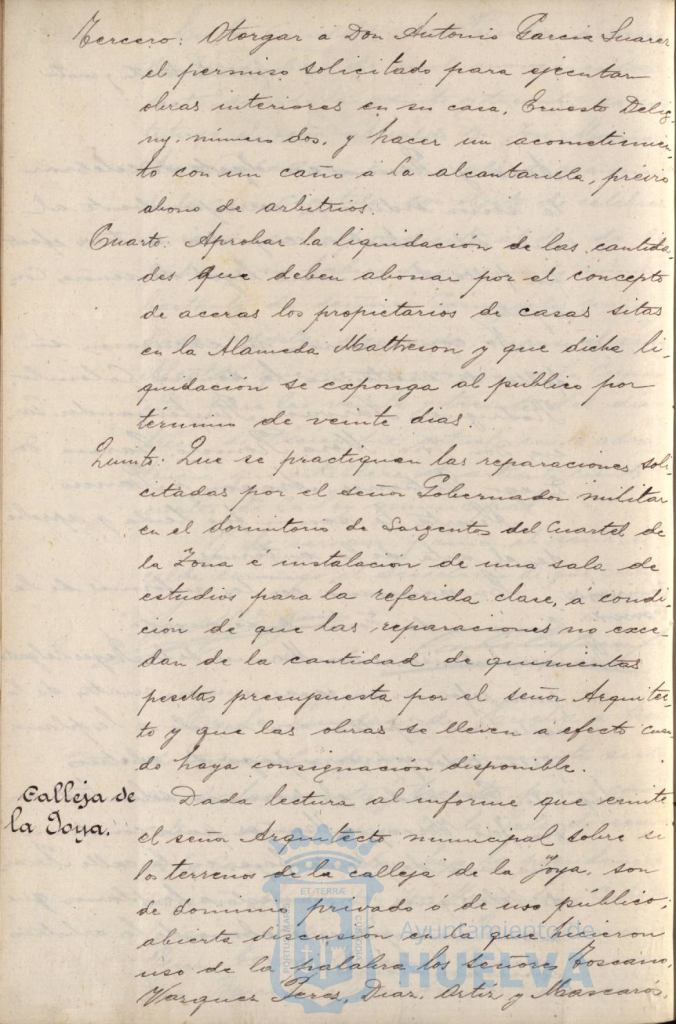 Tercero: Otorgar a Don Antonio Garcia Suarez
el permiso solicitado para ejecutar
obras interiores en su casa, Ernesto Delig-
ny, número dos, y hacer un acometimien-
to con un caño á la alcantarilla, prévio
abono de arbitrios.
Cuarto: Aprobar la liquidación de las cantida-
des que deben abonar por el concepto
de aceras los propietarios de casas sitas
en la Alameda Mattreson y que dicha li-
quidación se exponga al público por
término de veinte dias.
Quinto: Que se practiquen las reparaciones soli-
citadas por el señor Gobernador militar
en el dormitorio de Sargentos del Cuartel de
la Zona é instalación de una sala de
estudios para la referida clase, á condi-
ción de que las reparaciones no exce-
dan de la cantidad de quinientas
pesetas presupuesta por el señor Arquitec-
to y que las obras se lleven á efecto cuan-
do haya consignación disponible.
Calleja de
la Joya.
Dada lectura al informe que emite
el señor Arquitecto municipal sobre si
los terrenos de la calleja de la Joya, son
de dominio privado ó de uso público;
abierta discusión en la que hicieron
uso de la palabra los señores Toscano,
Vazquez Perez, Diaz, Ortiz y Mascarós,
Ayuntamiento de
HUELVA